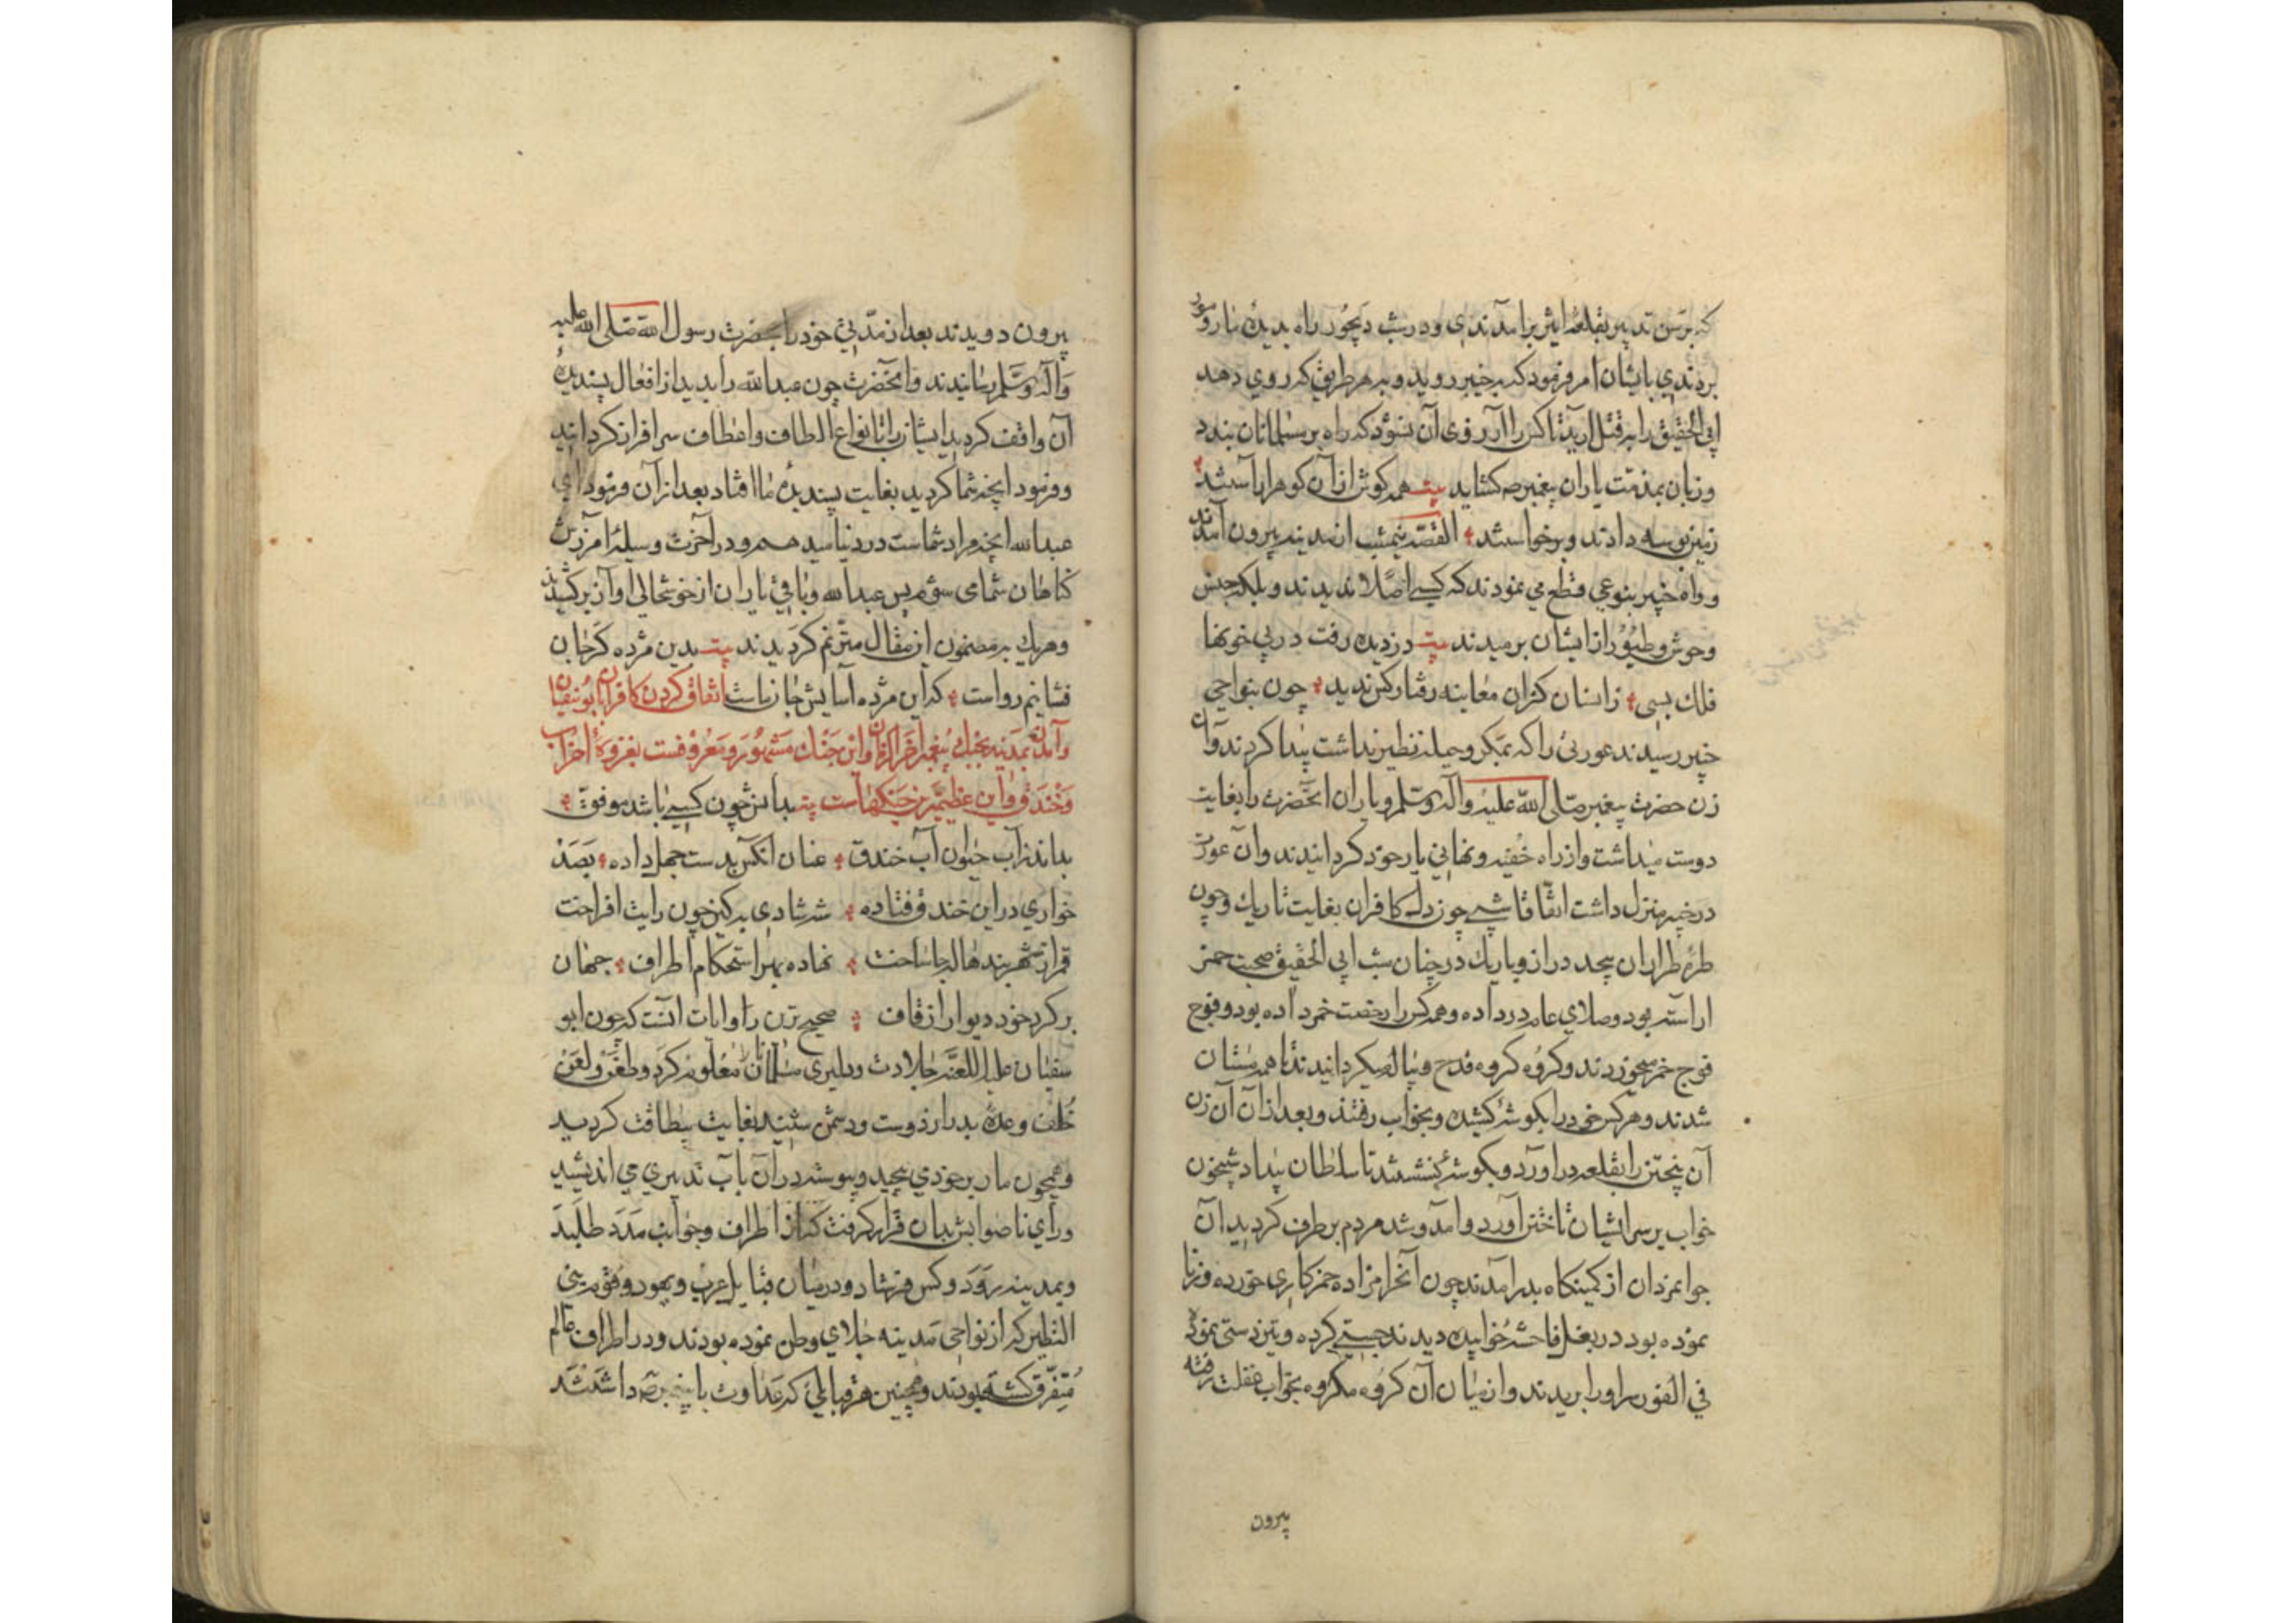 که برسن تدبیر بقلعهٔ ایشر برآمدندی و در شب دیجور راه بدیدهٔ مار و مور
بردندی بایشان امر فرمود که بخیبر روید و بهر طریق که روی دهد
ابی الحقیق را بقتل آرید تا کس را آرزوی آن نشود که راه بر مسلمانان بندد
و زبان بمذمت یاران پیغمبر ص کشاید بیت همه کوش از آن کوهر آراستند
زمین بوسه دادند و برخواستند القصه نیمشب از مدینه بیرون آمدند
و راه خیبر بنوعی قطع می نمودند که کسی اصلا ندیدند و بلکه جنس
وحوش و طیور از ایشان برمیدند بیت دزدیده رفت در پی خونها
فلک بسی زانسان کزان معاینه رفتار کس ندید چون بنواحی
خیبر رسیدند عورتی را که بمکر و حیله نظیر نداشت پیدا کردند و آن
زن حضرت پیغمبر صلی الله علیه وآله وسلم و یاران آنحضرت را بغایت
دوست میداشت و از راه خفیه و نهانی یار خود کردانیدند و آن عورت
در خیبر منزل داشت اتفاقا شبی چون دل کافران بغایت تاریک و چون
طرهٔ طراران بیحد دراز و باریک در چنان شب ابی الحقیق صحبت خمر
اراسته بود و صلای عام در داده و همه کس را رخصت خمر داده بود و فوج
فوج خمر میخوردند و کروه کروه قدح و پیاله میکردانیدند تا همه مستان
شدند و هر کس خود را بکوشهٔ کشیده و بخواب رفتند و بعد از آن آن زن
آن پنجتن را بقلعه در آورد و بکوشهٔ نشستند تا سلطان بیداد شبیخون
خواب بر سر ایشان تاختن آورد و آمد و شد مردم بر طرف کردید آن
جوانمردان از کمینکاه بدر آمدند چون آنحرامزاده خمر کاری خورده و زنا
نموده بود در بغل فاحشهٔ خوابیده دیدند جستی کرده و تیزدستی نموده
فی الفور سر او را بریدند و از میان آن کروه مکروه بخواب غفلت رفته
بیرون
بیرون دویدند بعد از مدتی خود را بحضرت رسول الله صلی الله علیه
وآله وسلم رسانیدند و آنحضرت چون عبدالله را بدید از افعال پسندیدهٔ
آن واقف کردید ایشانرا بانواع الطاف و اعطاف سرافراز کردانید
و فرمود آنچه شما کردید بغایت پسندیدهٔ ما افتاد بعد از آن فرمود ای
عبدالله آنچه مراد شماست در دنیا سیدهم و در آخرت وسیلهٔ آمرزش
کناهان شما می شوم پس عبدالله و باقی یاران از خوشحالی آواز برکشیدند
و هر یک بر مضمون این مقال مترنم کردیدند بیت بدین مژده کر جان
فشانیم رواست که این مژده آسایش جان ماست اتفاق کردن کافران با ابوسفیان
و آمدن بمدینه بجنک پیغمبر آخر الزمان و این جنک مشهور و معروفست بغزوهٔ احزاب
و خندق و این عظیمترین جنکهاست بیت بدانش چون کسی باشد موفق
بداند ز آب حیوان آب خندق عنان آنکس بدست جهل داده بصد
خواری در این خندق فتاده شر شادی بر کین چون رایت افراخت
قمر از شهربند هاله جا ساخت نهاده بهر استحکام اطراف جهان
بر کرد خود دیوار از قاف صحیح ترین روایات آنست که چون ابو
سفیان علیه اللعنه جلادت و دلیری مسلمانان معلوم کرد و طعن و لعن
خلف وعدهٔ بدر از دوست و دشمن شنید بغایت بیطاقت کردید
و همچون مار بر خود می پیچید و پیوسته در آن باب تدبیری می اندیشید
و رای ناصوابش بدان قرار کرفت که از اطراف و جوانب مدد طلبد
و بمدینه رود و کس فرستاد و در میان قبایل عرب و یهود و قوم بنی
النظیر که از نواحی مدینه جلای وطن نموده بودند و در اطراف عالم
متفرق کشته بودند و همچنین هر قبایلی که عداوت با پیغمبر ص داشتند